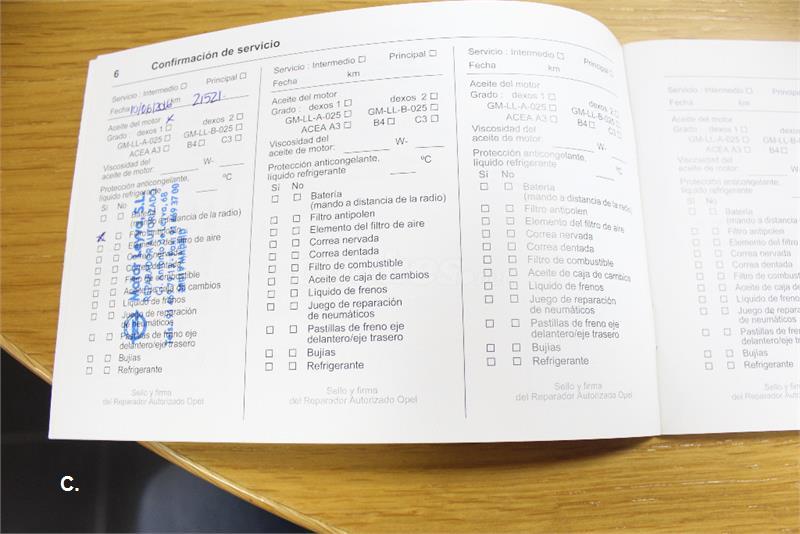 6 Confirmación de servicio
Servicio : Intermedio ☐ Principal ☐
Fecha 10/06/2016 km 21521
Aceite del motor x
Grado : dexos 1 ☐ dexos 2 ☐
GM-LL-A-025 ☐ GM-LL-B-025 ☐
ACEA A3 ☐ B4 ☐ C3 ☐
Viscosidad del
aceite de motor: W-
Protección anticongelante,
líquido refrigerante ºC
Sí No
(mando a distancia de la radio)
Elemento del filtro de aire
Aceite de caja de cambios
Líquido de frenos
Juego de reparación
de neumáticos
Pastillas de freno eje
delantero/eje trasero
Bujías
Refrigerante
Sello y firma
del Reparador Autorizado Opel
Motor Leyva, S.L.
REPARADOR AUTORIZADO
MADRID
Servicio : Intermedio ☐ Principal ☐
Fecha km
Aceite del motor
Grado : dexos 1 ☐ dexos 2 ☐
GM-LL-A-025 ☐ GM-LL-B-025 ☐
ACEA A3 ☐ B4 ☐ C3 ☐
Viscosidad del
aceite de motor: W-
Protección anticongelante,
líquido refrigerante ºC
Sí No
☐ ☐ Batería
(mando a distancia de la radio)
☐ ☐ Filtro antipolen
☐ ☐ Elemento del filtro de aire
☐ ☐ Correa nervada
☐ ☐ Correa dentada
☐ ☐ Filtro de combustible
☐ ☐ Aceite de caja de cambios
☐ ☐ Líquido de frenos
☐ ☐ Juego de reparación
de neumáticos
☐ ☐ Pastillas de freno eje
delantero/eje trasero
☐ ☐ Bujías
☐ ☐ Refrigerante
Sello y firma
del Reparador Autorizado Opel
Servicio : Intermedio ☐ Principal ☐
Fecha km
Aceite del motor
Grado : dexos 1 ☐ dexos 2 ☐
GM-LL-A-025 ☐ GM-LL-B-025 ☐
ACEA A3 ☐ B4 ☐ C3 ☐
Viscosidad del
aceite de motor: W-
Protección anticongelante,
líquido refrigerante ºC
Sí No
☐ ☐ Batería
(mando a distancia de la radio)
☐ ☐ Filtro antipolen
☐ ☐ Elemento del filtro de aire
☐ ☐ Correa nervada
☐ ☐ Correa dentada
☐ ☐ Filtro de combustible
☐ ☐ Aceite de caja de cambios
☐ ☐ Líquido de frenos
☐ ☐ Juego de reparación
de neumáticos
☐ ☐ Pastillas de freno eje
delantero/eje trasero
☐ ☐ Bujías
☐ ☐ Refrigerante
Sello y firma
del Reparador Autorizado Opel
Servicio : Intermedio
Fecha
Aceite del motor
Grado : dexos 1 ☐
GM-LL-A-025 ☐
ACEA A3 ☐
Viscosidad del
aceite de motor:
Protección anticongelante,
líquido refrigerante
Sí No
☐ ☐ Batería
(mando a distancia
☐ ☐ Filtro antipolen
☐ ☐ Elemento del filtro
☐ ☐ Correa nervada
☐ ☐ Correa dentada
☐ ☐ Filtro de combustible
☐ ☐ Aceite de caja de
☐ ☐ Líquido de frenos
☐ ☐ Juego de repara
de neumáticos
☐ ☐ Pastillas de fren
delantero/eje tra
☐ ☐ Bujías
☐ ☐ Refrigerante
Sello y fi
del Reparador Au
C.